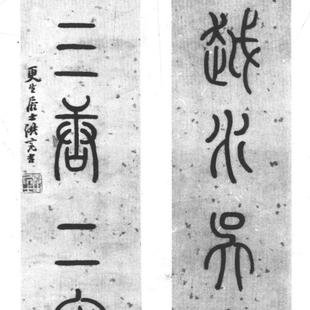 越水吳
三唐二
更生居士洪亮吉